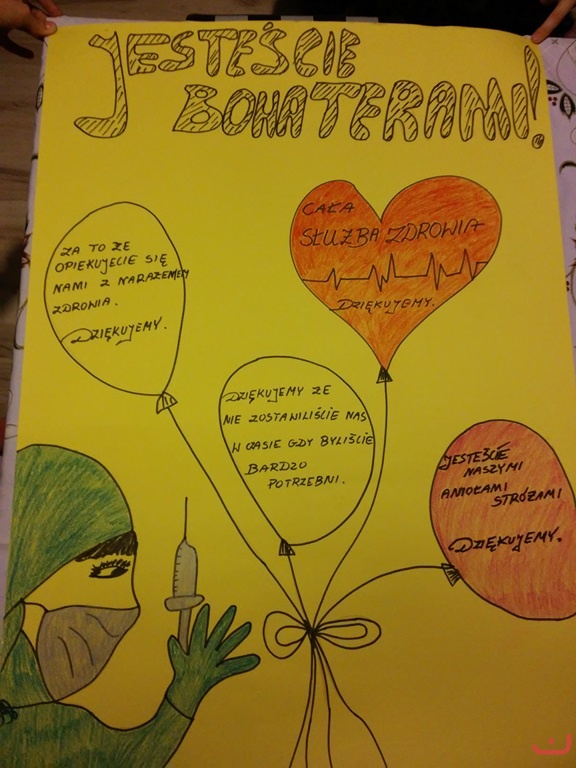 JESTEŚCIE
BOHATERAMI!
ZA TO ŻE
OPIEKUJECIE SIĘ
NAMI Z NARAŻENIEM
ZDROWIA.
DZIĘKUJEMY.
CAŁA
SŁUŻBA ZDROWIA
DZIĘKUJEMY.
DZIĘKUJEMY ŻE
NIE ZOSTAWILIŚCIE NAS
W CZASIE GDY BYLIŚCIE
BARDZO
POTRZEBNI.
JESTEŚCIE
NASZYMI
ANIOŁAMI
STRÓŻAMI
DZIĘKUJEMY.